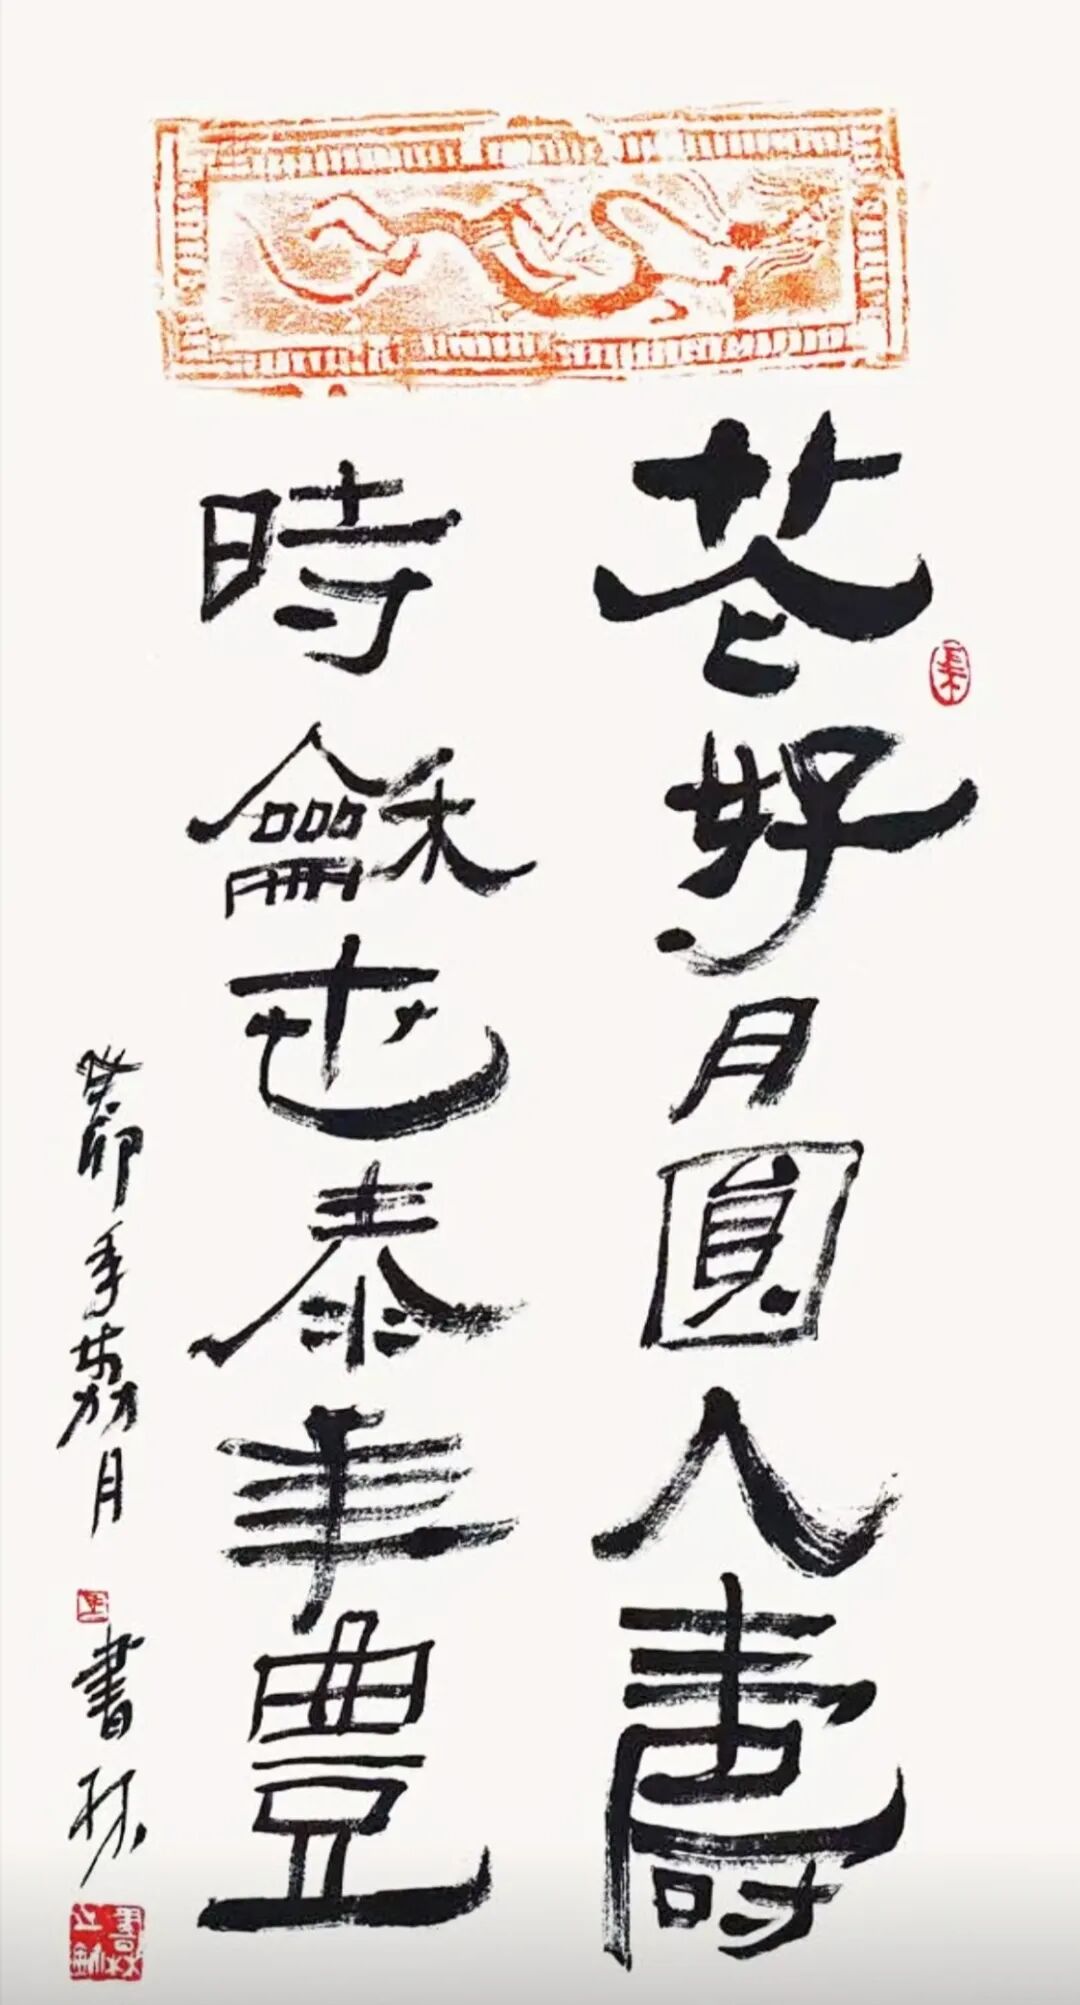 花好月圓人壽
時龢世泰年豐
癸卯年荔月
書林